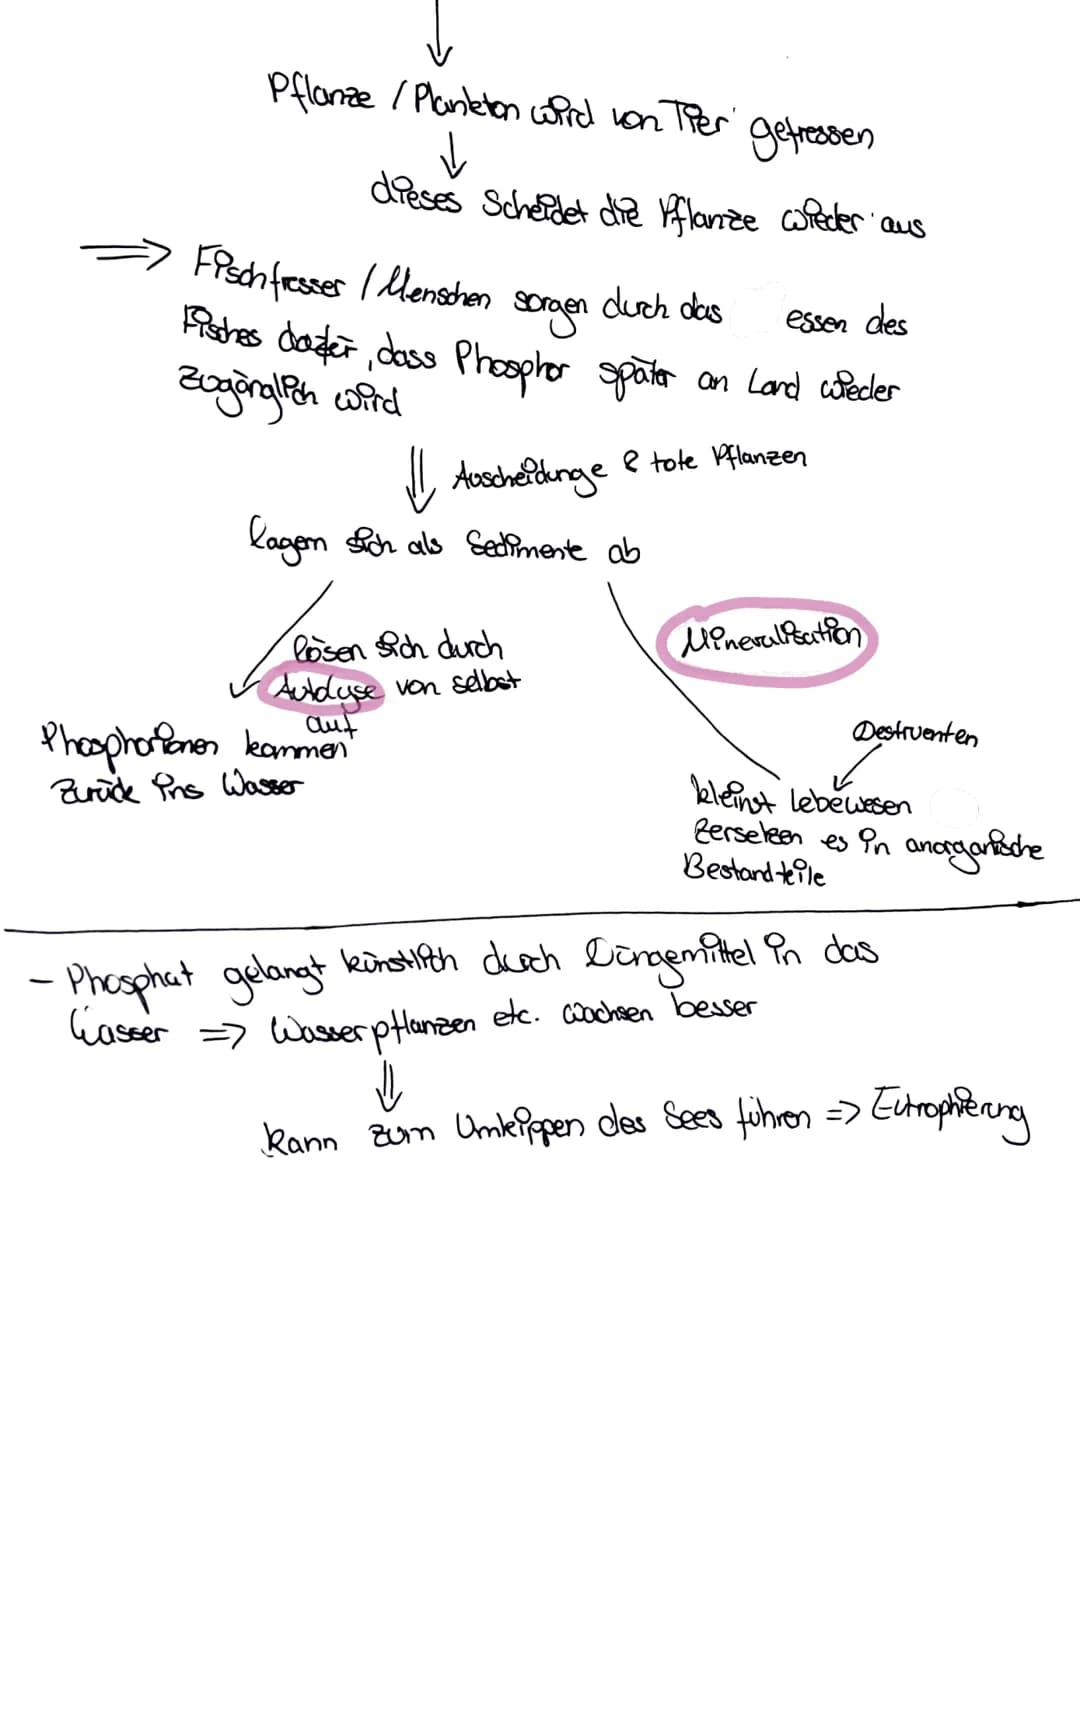 Pflanze / Plankton wird von Tier gefressen
dieses Scheidet die Pflanze wieder aus
=> Fischfresser / Menschen sorgen durch das essen des
Fisches dafür, dass Phosphor später an Land wieder
zugänglich wird
Ausscheidunge & tote Pflanzen
lagern sich als Sedimente ab
lösen sich durch
Autolyse von selbst
auf
Phosphorionen kommen
zurück ins Wasser
Mineralisation
Destruenten
kleinst Lebewesen
zersetzen es in anorganische
Bestandteile
- Phosphat gelangt künstlich durch Düngemittel in das
Wasser => Wasserpflanzen etc. wachsen besser
kann zum Umkippen des Sees führen => Eutrophierung